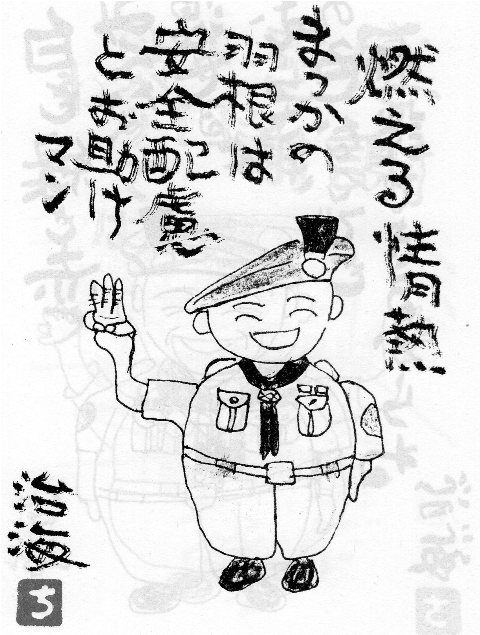 燃える情熱
まっかの
羽根は
安全配慮
とお助け
マン
ち